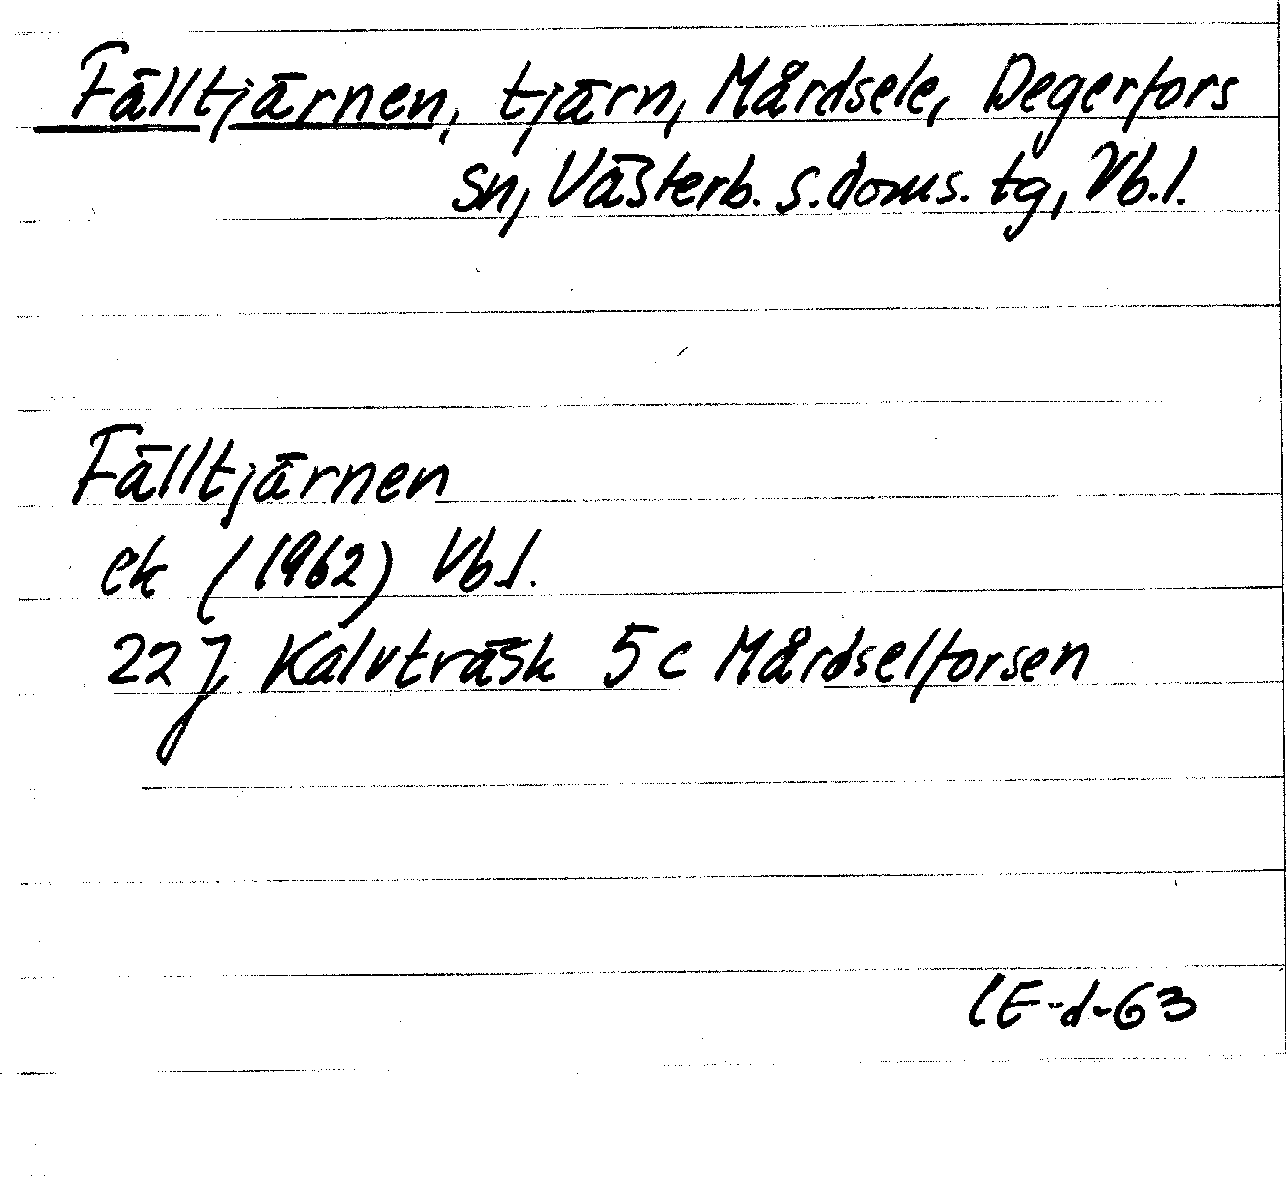 Fälltjärnen, tjärn, Mårdsele, Degerfors
sn, Västerb. s. doms. tg, Vb. l.
Fälltjärnen
ek (1962) Vb l.
22 J Kalvträsk 5 c Mårdselforsen
CE-d-63